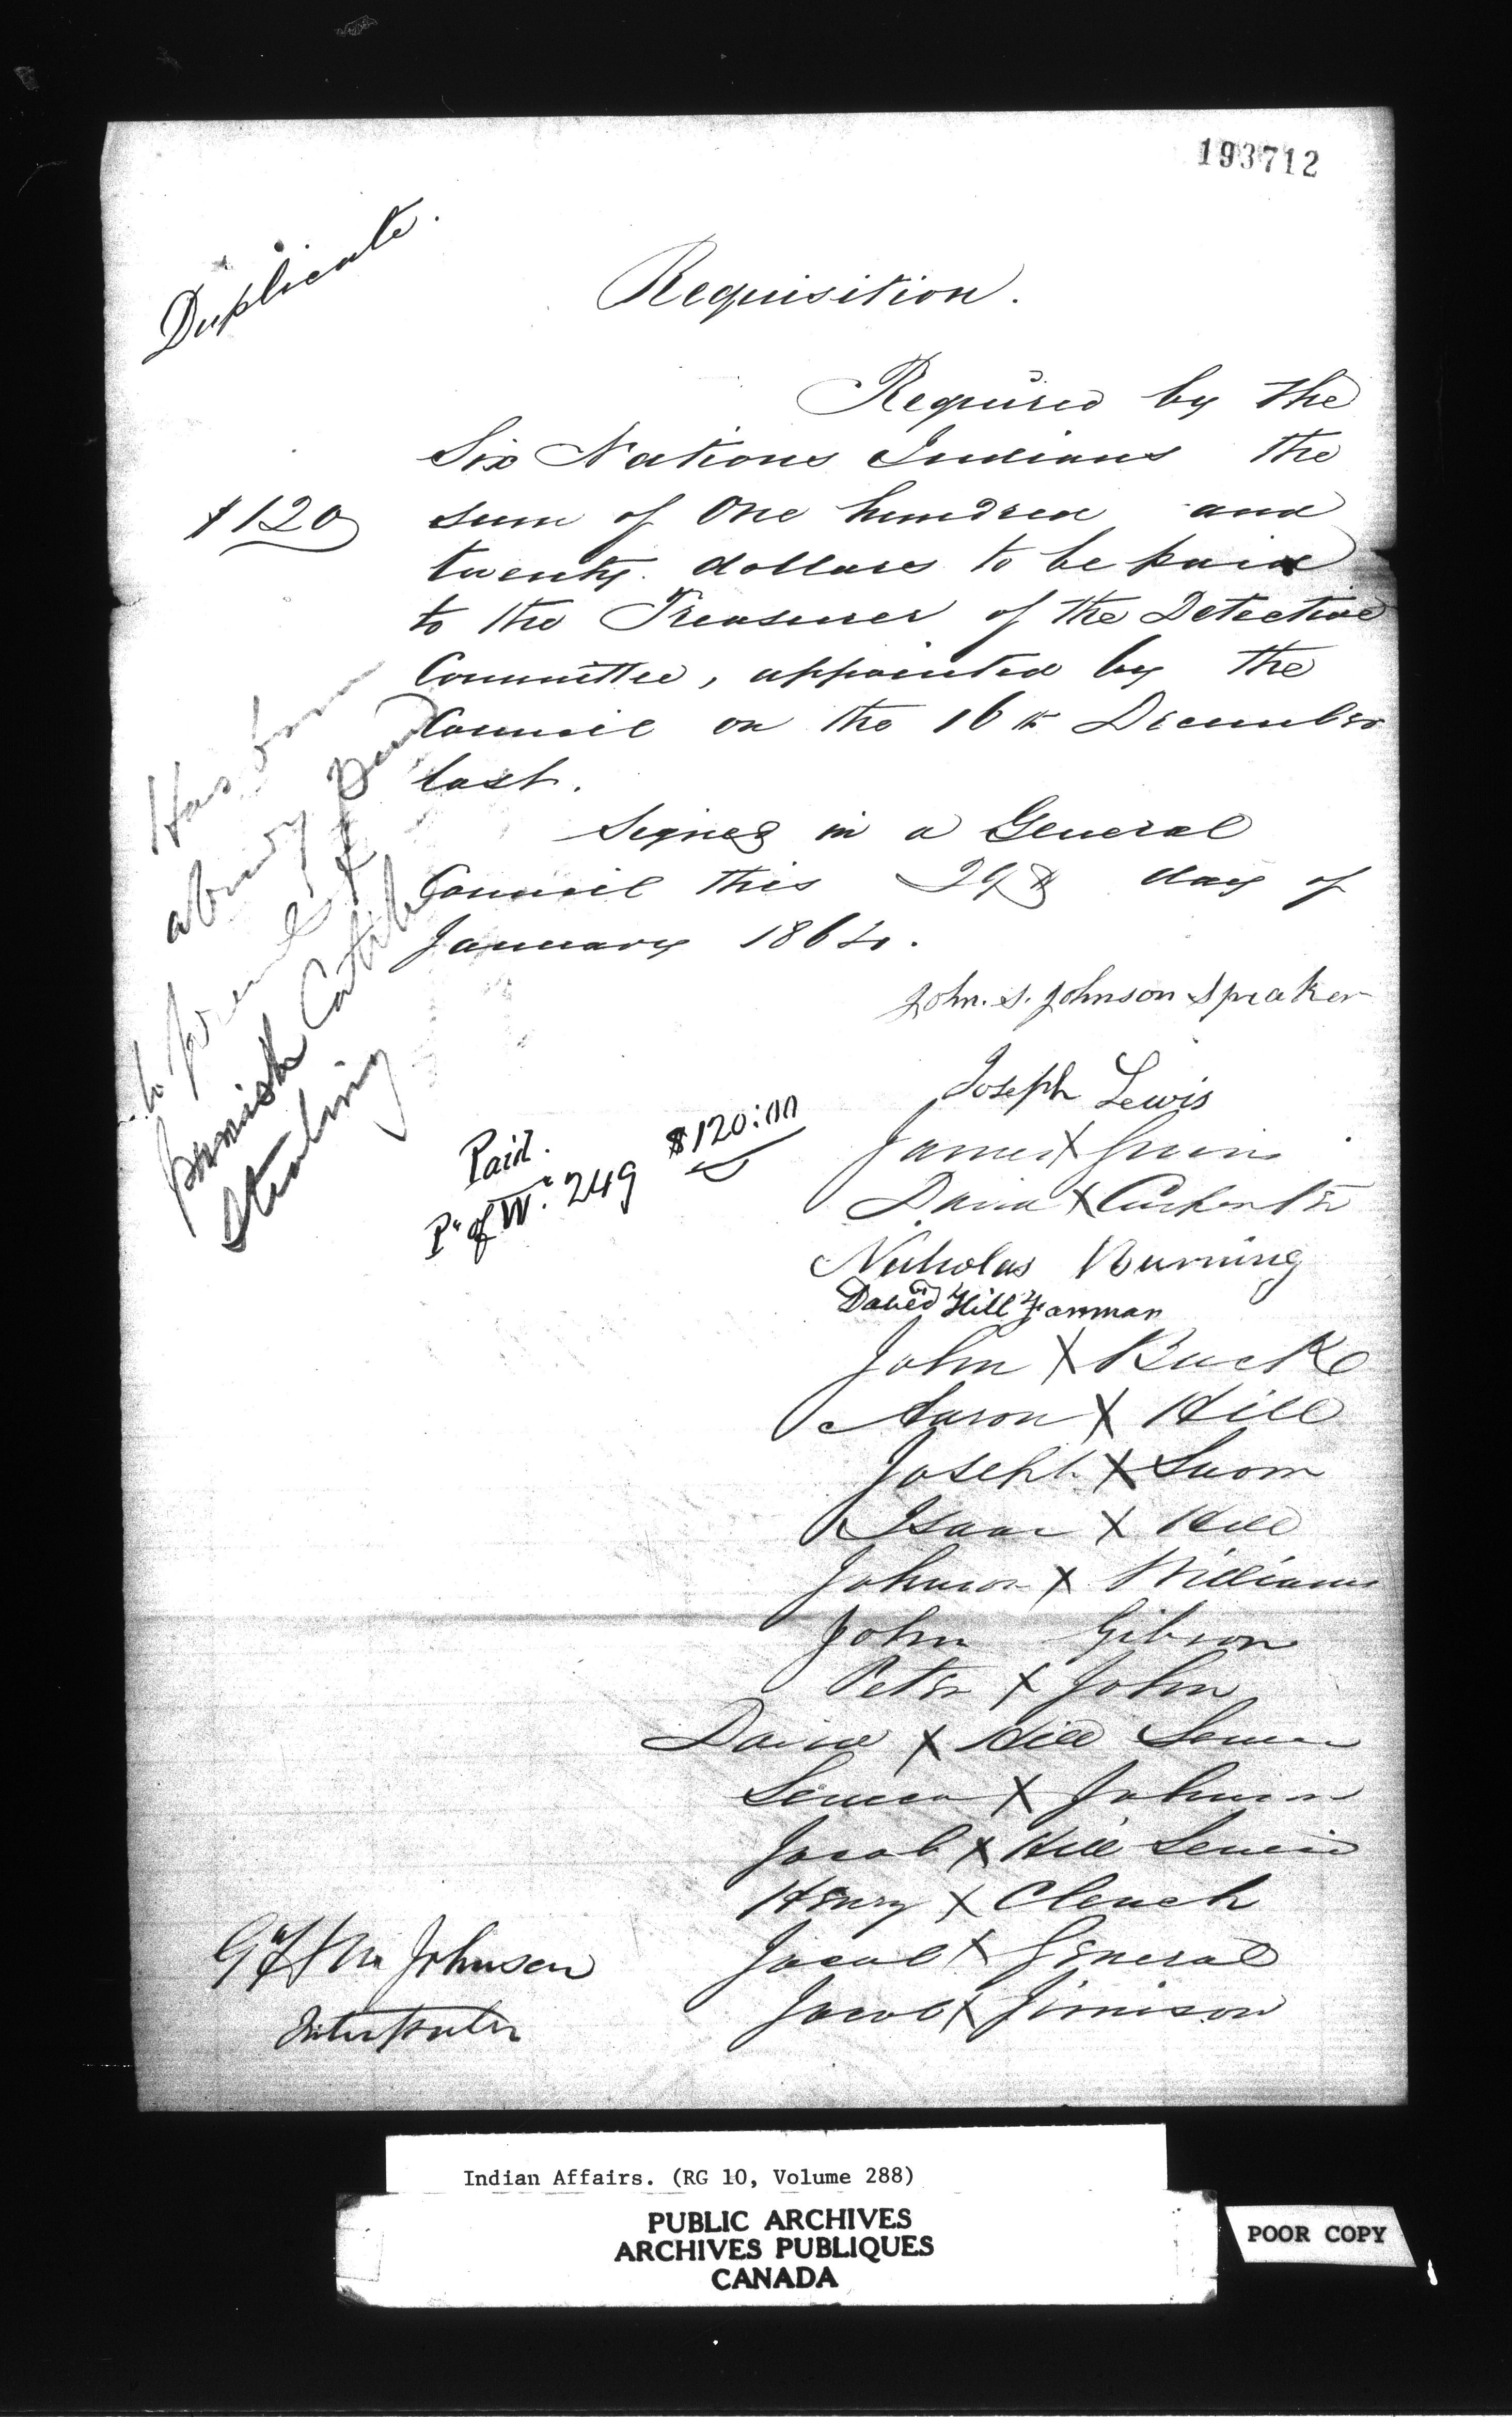 193712
Duplicate.
Requisition.
Required by the
Six Nations Indians the
$120 sum of One hundred and
twenty dollars to be paid
to the Treasurer of the Detective
Committee, appointed by the
Council on the 16th December
last.
Signed in a General
Council this 29th day of
January 1864.
Has been
already
to prevent &
punish Cattle
Stealing
John. S. Johnson Speaker
Joseph Lewis
Paid. $120:00
249
James X
David X Carpenter
Nicholas Burning
David Hill
John X Buck
Aaron X Hill
Joseph X Snow
Isaac X Hill
Johnson X Williams
John Gibson
Peter X John
David X Hill Seneca
Seneca X Johnson
Jacob X Hill
Henry X Clench
Jacob X General
Jacob X Jimison
Johnson
Interpreter
Indian Affairs. (RG 10, Volume 288)
PUBLIC ARCHIVES
ARCHIVES PUBLIQUES
CANADA
POOR COPY